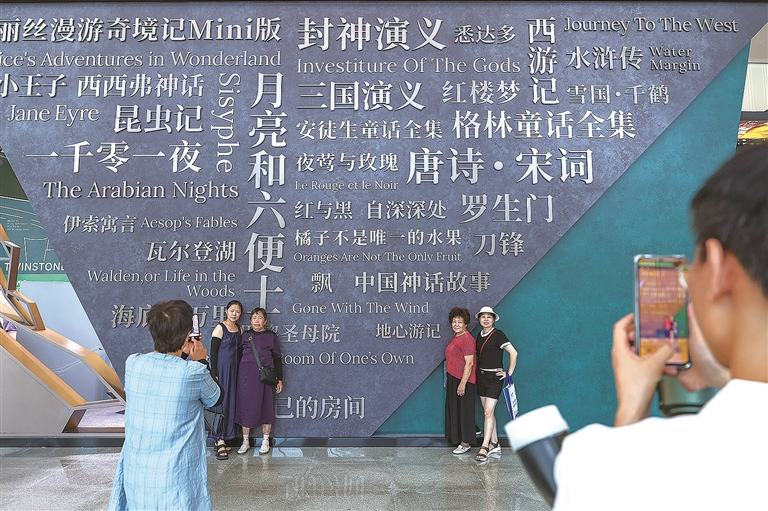 丽丝漫游奇境记Mini版
ice's Adventures in Wonderland
小王子 西西弗神话
Sisyphe
Jane Eyre 昆虫记
一千零一夜
The Arabian Nights
伊索寓言 Aesop's Fables
瓦尔登湖
Walden,or Life in the
Woods
海底
万里
月亮和六便士
封神演义 悉达多
Investiture Of The Gods
西游记
Journey To The West
水浒传 Water
Margin
三国演义 红楼梦
雪国·千鹤
安徒生童话全集 格林童话全集
夜莺与玫瑰
Le Rouge et le Noir
唐诗·宋词
红与黑 自深深处 罗生门
橘子不是唯一的水果
Oranges Are Not The Only Fruit
刀锋
飘 中国神话故事
Gone With The Wind
圣母院 地心游记
oom Of One's Own
己的房间
TWINSTONE